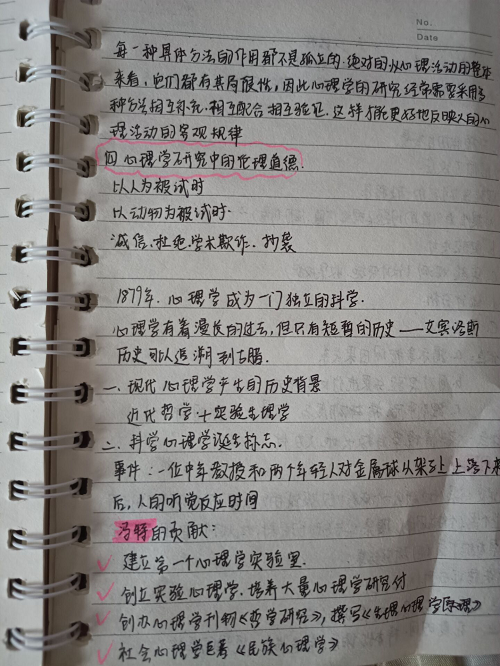 No.
Date
每一种具体方法的作用都不是孤立的、绝对的从心理活动的整体
来看,它们都有其局限性,因此心理学的研究经常需要采用多
种方法相互补充、相互配合相互验证,这样才能更好地反映人的心
理活动的客观规律
四 心理学研究中的伦理道德.
以人为被试时
以动物为被试时.
诚信、杜绝学术欺诈、抄袭
1879年,心理学成为一门独立的科学.
心理学有着漫长的过去,但只有短暂的历史——艾宾浩斯
历史可以追溯到古腊.
一、现代心理学产生的历史背景
近代哲学+实验生理学
二、科学心理学诞生标志.
事件:一位中年教授和两个年轻人对金属球从架子上上落下来
后,人的听觉反应时间
冯特的贡献:
✓ 建立第一个心理学实验室.
✓ 创立实验心理学,培养大量心理学研究付
✓ 创办心理学刊物《哲学研究》,撰写《生理心理学原理》
✓ 社会心理学巨著《民族心理学》